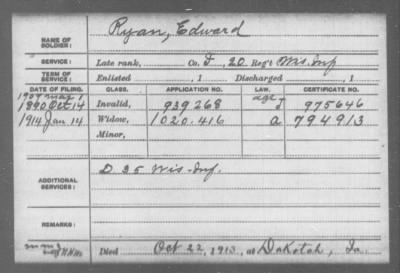 NAME OF SOLDIER: Ryan, Edward
SERVICE: Late rank, Co. F, 20 Reg't Wis. Inf
TERM OF SERVICE: Enlisted , 1 Discharged , 1
DATE OF FILING. CLASS. APPLICATION NO. LAW. CERTIFICATE NO.
1907 Mar 1 age
1890 Oct 14 Invalid, 939268 975646
1914 Jan 14 Widow, 1020.416 a 794913
Minor,
ADDITIONAL SERVICES: D 35 Wis. Inf.
REMARKS:
Died Oct 22, 1913, at Dakotah, Ia.